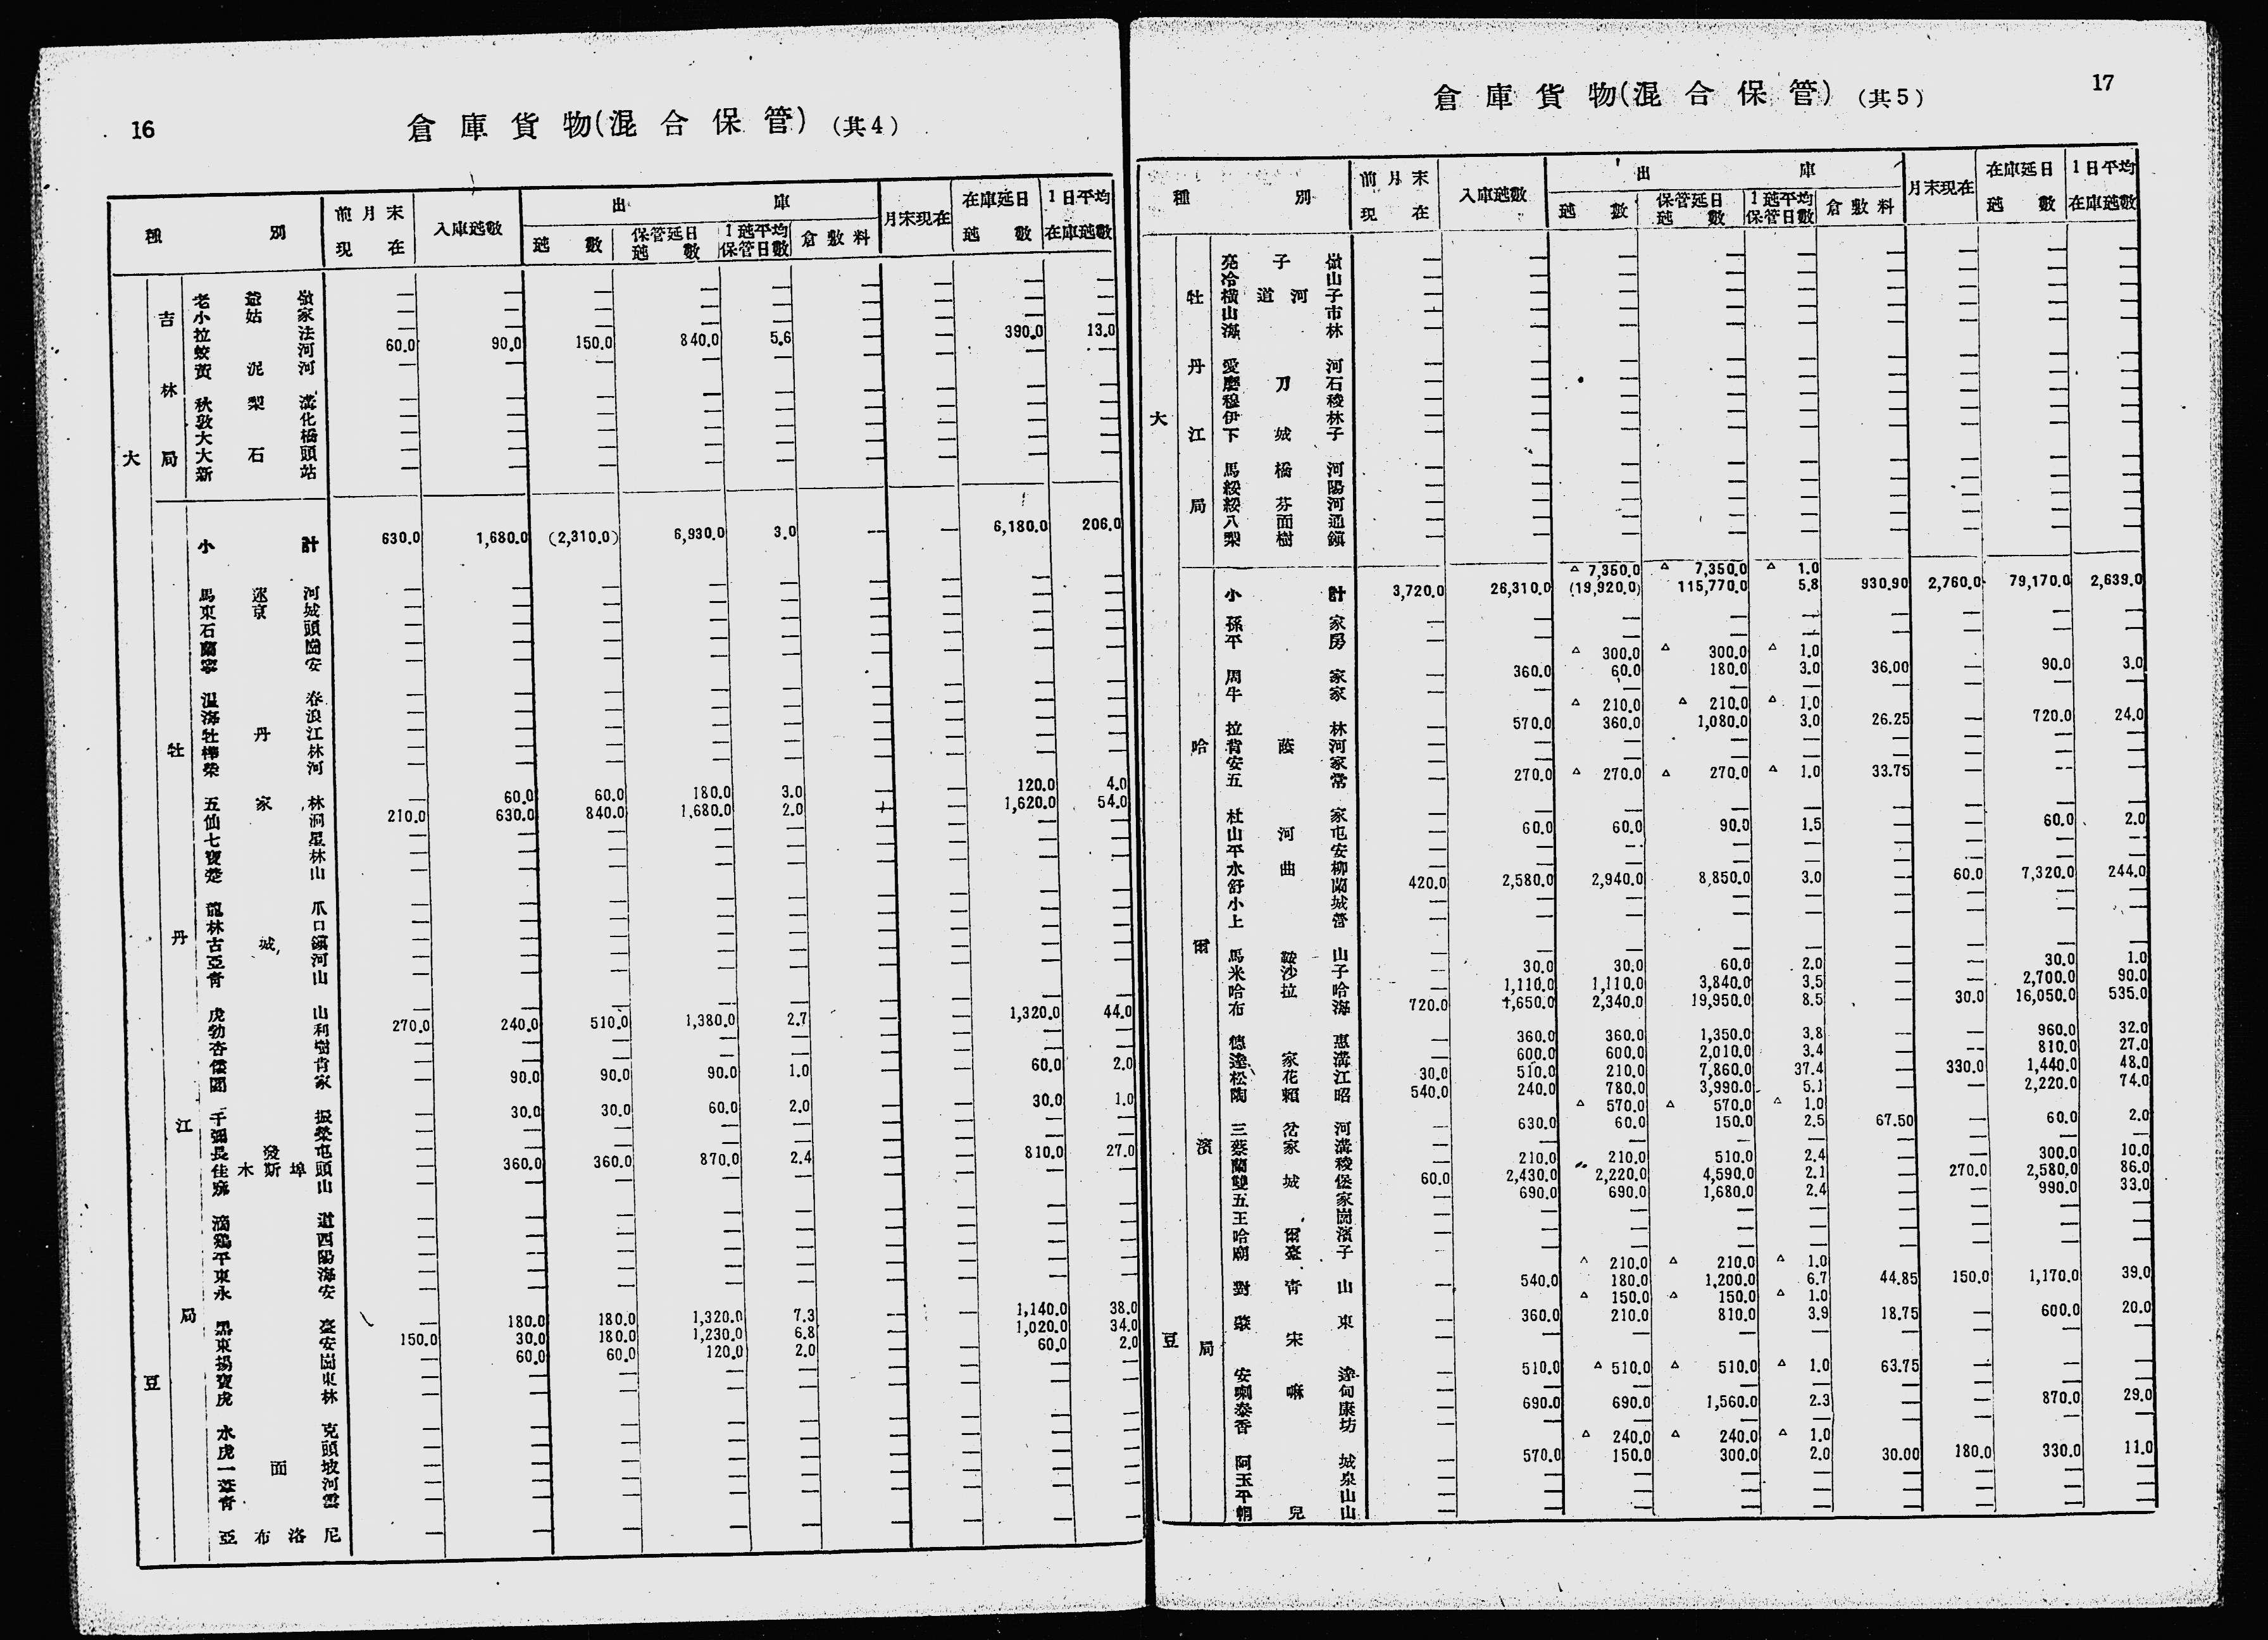 16
倉庫貨物(混合保管) (其4)
種別 前月末現在 入庫瓲數 出庫 月末現在 在庫延日瓲數 1日平均在庫瓲數
瓲數 保管延日瓲數 1瓲平均保管日數 倉敷料
大豆
吉林局
老爺嶺 — — — — — — — — —
小姑家 — — — — — — — — —
拉法 — — — — — — —
蛟河 60.0 90.0 150.0 840.0 5.6 — — 390.0 13.0
黃泥河 — — — — — — — — —
秋梨溝 — — — — — — — — —
敦化 — — — — — — — — —
大橋 — — — — — — — — —
大石頭 — — — — — — — — —
新站 — — — — — — — — —
小計 630.0 1,680.0 (2,310.0) 6,930.0 3.0 — — 6,180.0 206.0
牡丹江局
馬蓮河 — — — — — — — — —
東京城 — — — — — — — — —
石頭 — — — — — — — — —
蘭崗 — — — — — — — — —
寧安 — — — — — — — — —
溫春 — — — — — — — — —
海浪 — — — — — — — — —
牡丹江 — — — — — — — — —
樺林 — — — — — — — — —
柴河 — — — — — — — — —
五家林 — 60.0 60.0 180.0 3.0 — — 120.0 4.0
仙洞 210.0 630.0 840.0 1,680.0 2.0 — — 1,620.0 54.0
七星 — — — — — — — — —
寶林 — — — — — — — — —
楚山 — — — — — — — — —
龍爪 — — — — — — — — —
林口 — — — — — — — — —
古城鎮 — — — — — — — — —
亞河 — — — — — — — — —
靑山 — — — — — — — — —
虎山 — — — — — — — — —
勃利 270.0 240.0 510.0 1,380.0 2.7 — — 1,320.0 44.0
杏樹 — — — — — — — — —
倭肯 — — — — — — — — —
閻家 — 90.0 90.0 90.0 1.0 — — 60.0 2.0
千振 — 30.0 30.0 60.0 2.0 — — 30.0 1.0
彌榮 — — — — — — — — —
長發屯 — — — — — — — — —
佳木斯埠頭 — 360.0 360.0 870.0 2.4 — — 810.0 27.0
麻山 — — — — — — — — —
滴道 — — — — — — — — —
鷄西 — — — — — — — — —
平陽 — — — — — — — — —
東海 — — — — — — — — —
永安 — — — — — — — — —
黑臺 — 180.0 180.0 1,320.0 7.3 — — 1,140.0 38.0
東安 150.0 30.0 180.0 1,230.0 6.8 — — 1,020.0 34.0
楊崗 — 60.0 60.0 120.0 2.0 — — 60.0 2.0
寶東 — — — — — — — — —
虎林 — — — — — — — — —
水克 — — — — — — — — —
虎頭 — — — — — — — — —
一面坡 — — — — — — — — —
葦河 — — — — — — — — —
靑雲 — — — — — — — — —
亞布洛尼 — — — — — — — — —
17
倉庫貨物(混合保管) (共5)
種別 前月末現在 入庫瓲數 出庫 月末現在 在庫延日瓲數 1日平均在庫瓲數
瓲數 保管延日瓲數 1瓲平均保管日數 倉敷料
大豆
牡丹江局
亮子嶺 — — — — — — — — —
冷山 — — — — — — — — —
橫道河子 — — — — — — — — —
山市 — — — — — — — — —
海林 — — — — — — — — —
愛河 — — — — — — — — —
磨刀石 — — — — — — — — —
穆稜 — — — — — — — — —
伊林 — — — — — — — — —
下城子 — — — — — — — — —
馬橋河 — — — — — — — — —
綏陽 — — — — — — — — —
綏芬河 — — — — — — — — —
八面通 — — — — — — — — —
梨樹鎮 — — — — — — — — —
△ 7,350.0 △ 7,350.0 △ 1.0
小計 3,720.0 26,310.0 (19,920.0) 115,770.0 5.8 930.90 2,760.0 79,170.0 2,639.0
哈爾濱局
孫家 — — — — — — — — —
平房 — — — — — — — — —
△ 300.0 △ 300.0 △ 1.0
周家 — 360.0 60.0 180.0 3.0 36.00 — 90.0 3.0
牛家 — — — — — — — — —
△ 210.0 △ 210.0 △ 1.0
拉林 — 570.0 360.0 1,080.0 3.0 26.25 — 720.0 24.0
背蔭河 — — — — — — — — —
安家 — — — — — — — — —
五常 — 270.0 △ 270.0 △ 270.0 △ 1.0 33.75 — — —
杜家 — — — — — — — — —
山河屯 — 60.0 60.0 90.0 1.5 — — 60.0 2.0
平安 — — — — — — — — —
水曲柳 — — — — — — — — —
舒蘭 420.0 2,580.0 2,940.0 8,850.0 3.0 — 60.0 7,320.0 244.0
小城 — — — — — — — — —
上營 — — — — — — — — —
馬鞍山 — — — — — — — — —
米沙子 — 30.0 30.0 60.0 2.0 — — 30.0 1.0
哈拉哈 — 1,110.0 1,110.0 3,840.0 3.5 — — 2,700.0 90.0
布海 720.0 1,650.0 2,340.0 19,950.0 8.5 — 30.0 16,050.0 535.0
德惠 — 360.0 360.0 1,350.0 3.8 — — 960.0 32.0
達家溝 — 600.0 600.0 2,010.0 3.4 — — 810.0 27.0
松花江 30.0 510.0 210.0 7,860.0 37.4 — 330.0 1,440.0 48.0
陶賴昭 540.0 240.0 780.0 3,990.0 5.1 — — 2,220.0 74.0
△ 570.0 △ 570.0 △ 1.0
三岔河 — 630.0 60.0 150.0 2.5 67.50 — 60.0 2.0
蔡家溝 — — — — — — — — —
蘭稜 — 210.0 210.0 510.0 2.4 — — 300.0 10.0
雙城堡 60.0 2,430.0 2,220.0 4,590.0 2.1 — 270.0 2,580.0 86.0
五家 — 690.0 690.0 1,680.0 2.4 — — 990.0 33.0
王崗 — — — — — — — — —
哈爾濱 — — — — — — — — —
廟臺子 — — — — — — — — —
△ 210.0 △ 210.0 △ 1.0
對靑山 — 540.0 180.0 1,200.0 6.7 44.85 150.0 1,170.0 39.0
△ 150.0 △ 150.0 △ 1.0
肇東 — 360.0 210.0 810.0 3.9 18.75 — 600.0 20.0
宋 — — — — — — — — —
安達 — 510.0 △ 510.0 △ 510.0 △ 1.0 63.75 — — —
喇嘛甸 — — — — — — — — —
泰康 — 690.0 690.0 1,560.0 2.3 — — 870.0 29.0
香坊 — — — — — — — — —
△ 240.0 △ 240.0 △ 1.0
阿城 — 570.0 150.0 300.0 2.0 30.00 180.0 330.0 11.0
玉泉 — — — — — — — — —
平山 — — — — — — — — —
帽兒山 — — — — — — — — —